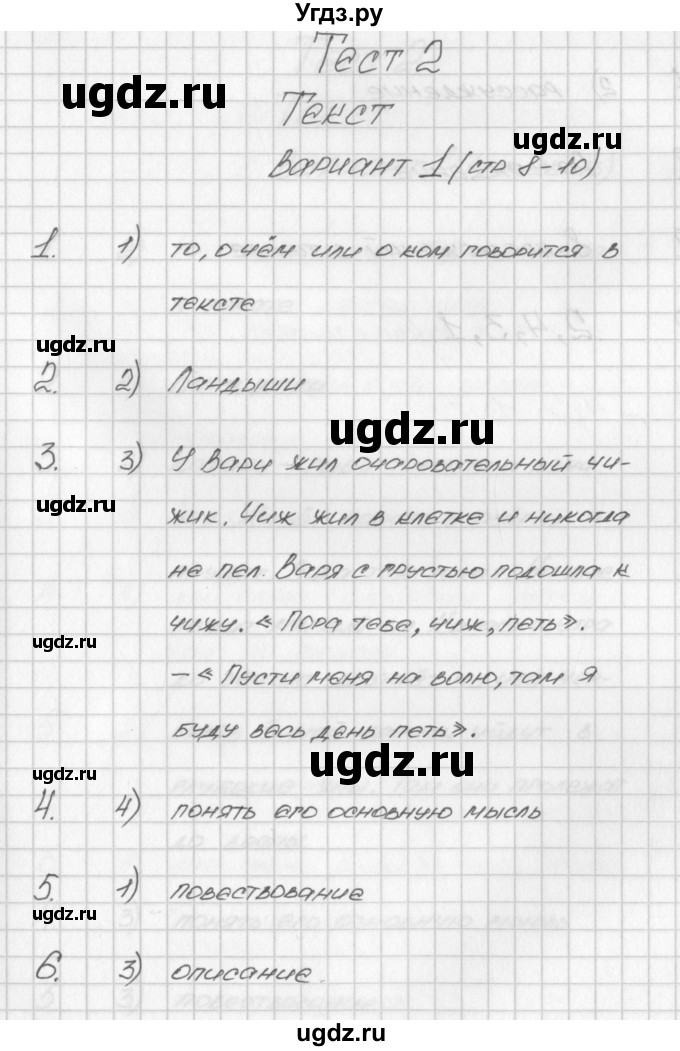 Угдз.ру
Тест 2
ugdz.ru
Текст
ugdz.ru
Вариант 1 (стр 8-10)
1. 1) то, о чём или о ком говорится в
тексте
ugdz.ru
2. 2) Ландыши
ugdz.ru
3. 3) У Вари жил очаровательный чи-
ugdz.ru
жик. Чиж жил в клетке и никогда
не пел. Варя с грустью подошла к
чижу. « Пора тебе, чиж, петь».
ugdz.ru
– « Пусти меня на волю, там я
буду весь день петь».
ugdz.ru
ugdz.ru
4. 4) понять его основную мысль
5. 1) повествование
ugdz.ru
6. 3) описание.
ugdz.ru